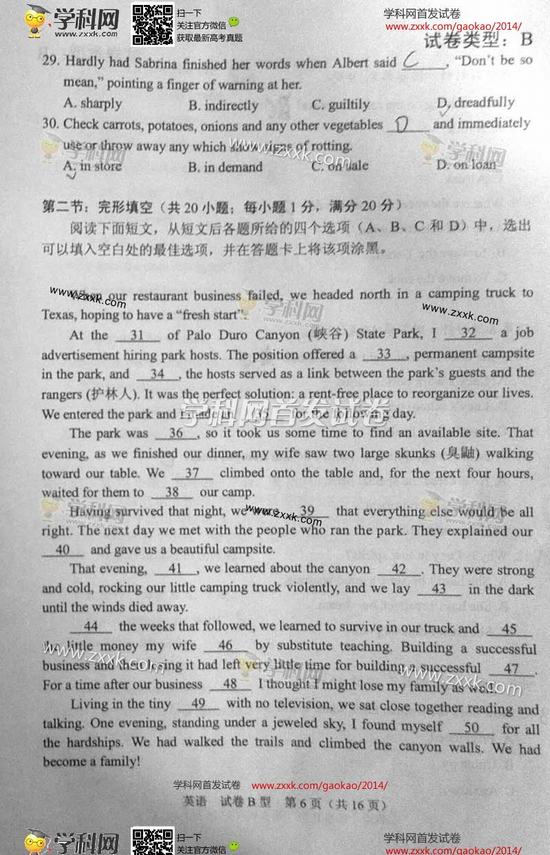 学科网 www.zxxk.com 扫一下 关注官方微信 获取最新高考真题
学科网首发试卷
www.zxxk.com/gaokao/2014/
试卷类型：B
29. Hardly had Sabrina finished her words when Albert said C , “Don’t be so
mean,” pointing a finger of warning at her.
A. sharply B. indirectly C. guiltily D. dreadfully
30. Check carrots, potatoes, onions and any other vegetables D and immediately
use or throw away any which show signs of rotting.
A. in store B. in demand C. on sale D. on loan
第二节：完形填空（共20小题；每小题1分，满分20分）
阅读下面短文，从短文后各题所给的四个选项（A、B、C和D）中，选出
可以填入空白处的最佳选项，并在答题卡上将该项涂黑。
When our restaurant business failed, we headed north in a camping truck to
Texas, hoping to have a “fresh start”.
At the 31 of Palo Duro Canyon (峡谷) State Park, I 32 a job
advertisement hiring park hosts. The position offered a 33 , permanent campsite
in the park, and 34 , the hosts served as a link between the park’s guests and the
rangers (护林人). It was the perfect solution: a rent-free place to reorganize our lives.
We entered the park and made an 35 for the following day.
The park was 36 , so it took us some time to find an available site. That
evening, as we finished our dinner, my wife saw two large skunks (臭鼬) walking
toward our table. We 37 climbed onto the table and, for the next four hours,
waited for them to 38 our camp.
Having survived that night, we were 39 that everything else would be all
right. The next day we met with the people who ran the park. They explained our
40 and gave us a beautiful campsite.
That evening, 41 , we learned about the canyon 42 . They were strong
and cold, rocking our little camping truck violently, and we lay 43 in the dark
until the winds died away.
44 the weeks that followed, we learned to survive in our truck and 45
the little money my wife 46 by substitute teaching. Building a successful
business and losing it had left very little time for building a successful 47 .
For a time after our business 48 I thought I might lose my family as well.
Living in the tiny 49 with no television, we sat close together reading and
talking. One evening, standing under a jeweled sky, I found myself 50 for all
the hardships. We had walked the trails and climbed the canyon walls. We had
become a family!
学科网首发试卷 www.zxxk.com/gaokao/2014/
英语 试卷B型 第6页（共16页）
学科网 www.zxxk.com 扫一下 关注官方微信
学科网首发试卷
www.zxxk.com/gaokao/2014/